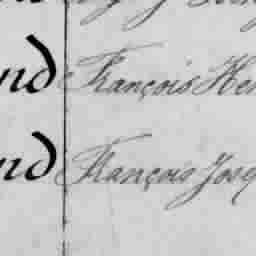 nd François Hen
nd François Jose